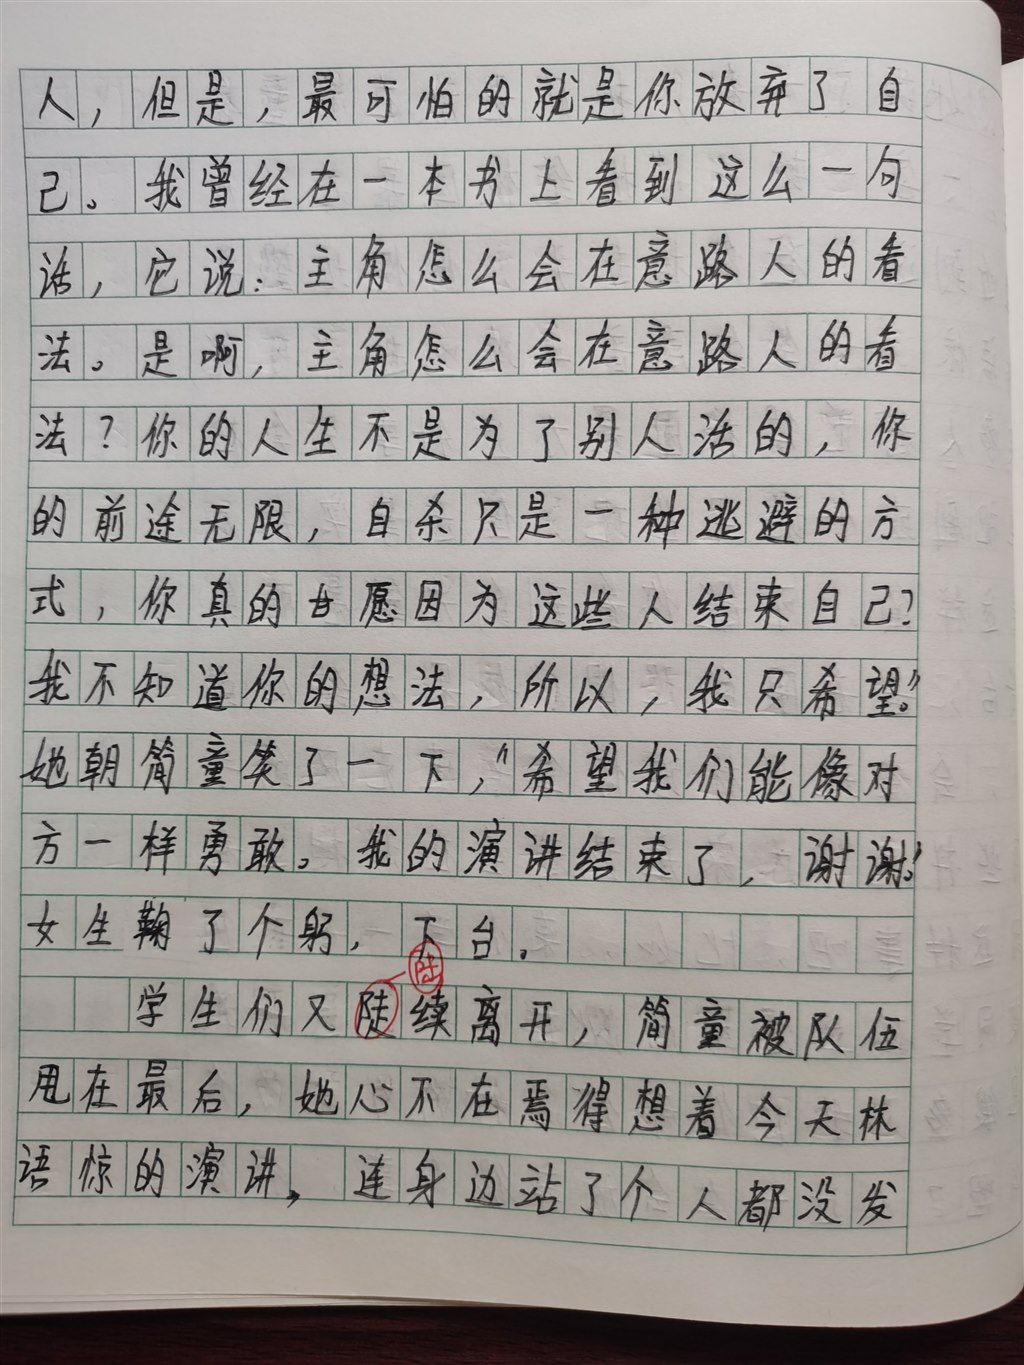 人，但是，最可怕的就是你放弃了自
己。我曾经在一本书上看到这么一句
话，它说：主角怎么会在意路人的看
法。是啊，主角怎么会在意路人的看
法？你的人生不是为了别人活的，你
的前途无限，自杀只是一种逃避的方
式，你真的甘愿因为这些人结束自己？
我不知道你的想法，所以，我只希望。”
她朝简童笑了一下，“希望我们能像对
方一样勇敢。我的演讲结束了，谢谢。”
女生鞠了个躬，下台。
陆
学生们又陆续离开，简童被队伍
甩在最后，她心不在焉得想着今天林
语惊的演讲，连身边站了个人都没发